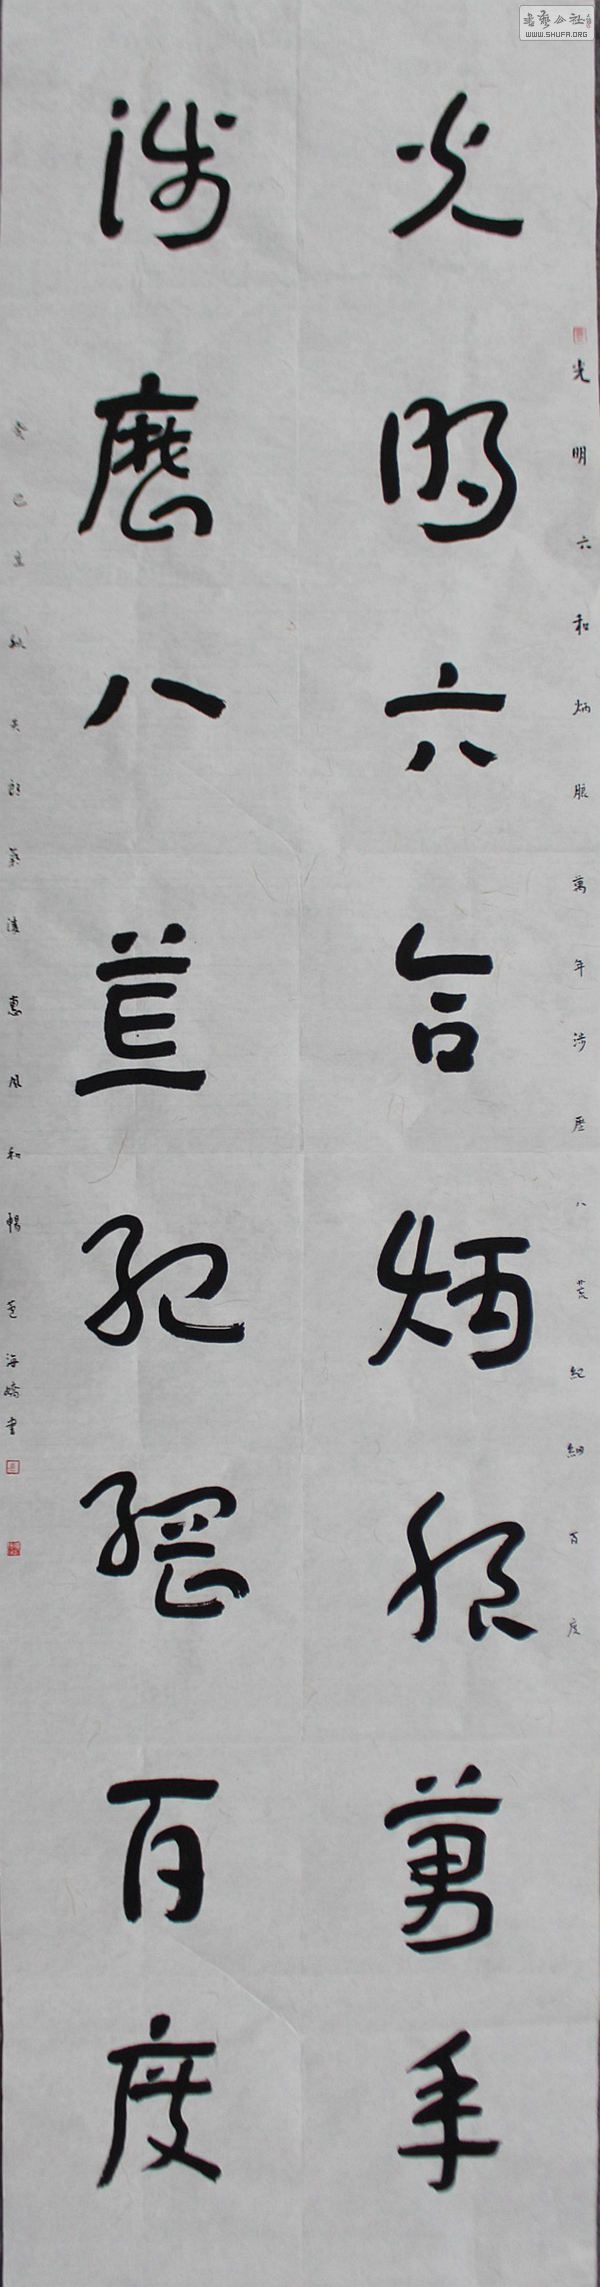 光明六合炳朖萬年
涉歷八荒紀綱百度
光明六和炳朖萬年涉歷八荒紀綱百度
癸巳立秋天朗氣清惠風和暢
海嬌書
WWW.SHUFA.ORG